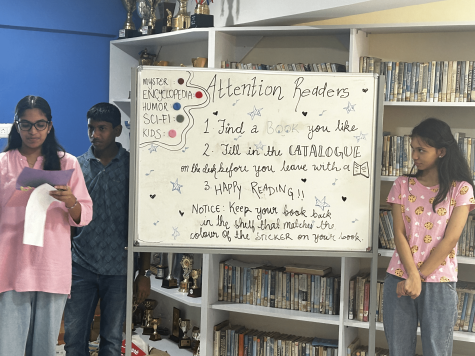 MYSTER
ENCYCLOPEDIA
HUMOR
SCI-FI
KIDS:
Attention Readers
1 Find a Book you like
2. Fill in the CATALOGUE
on the desk before you leave with a
3 HAPPY READING!!
NOTICE: Keep your book back
in the shelf that matches the
colour of the STICKER on your book.